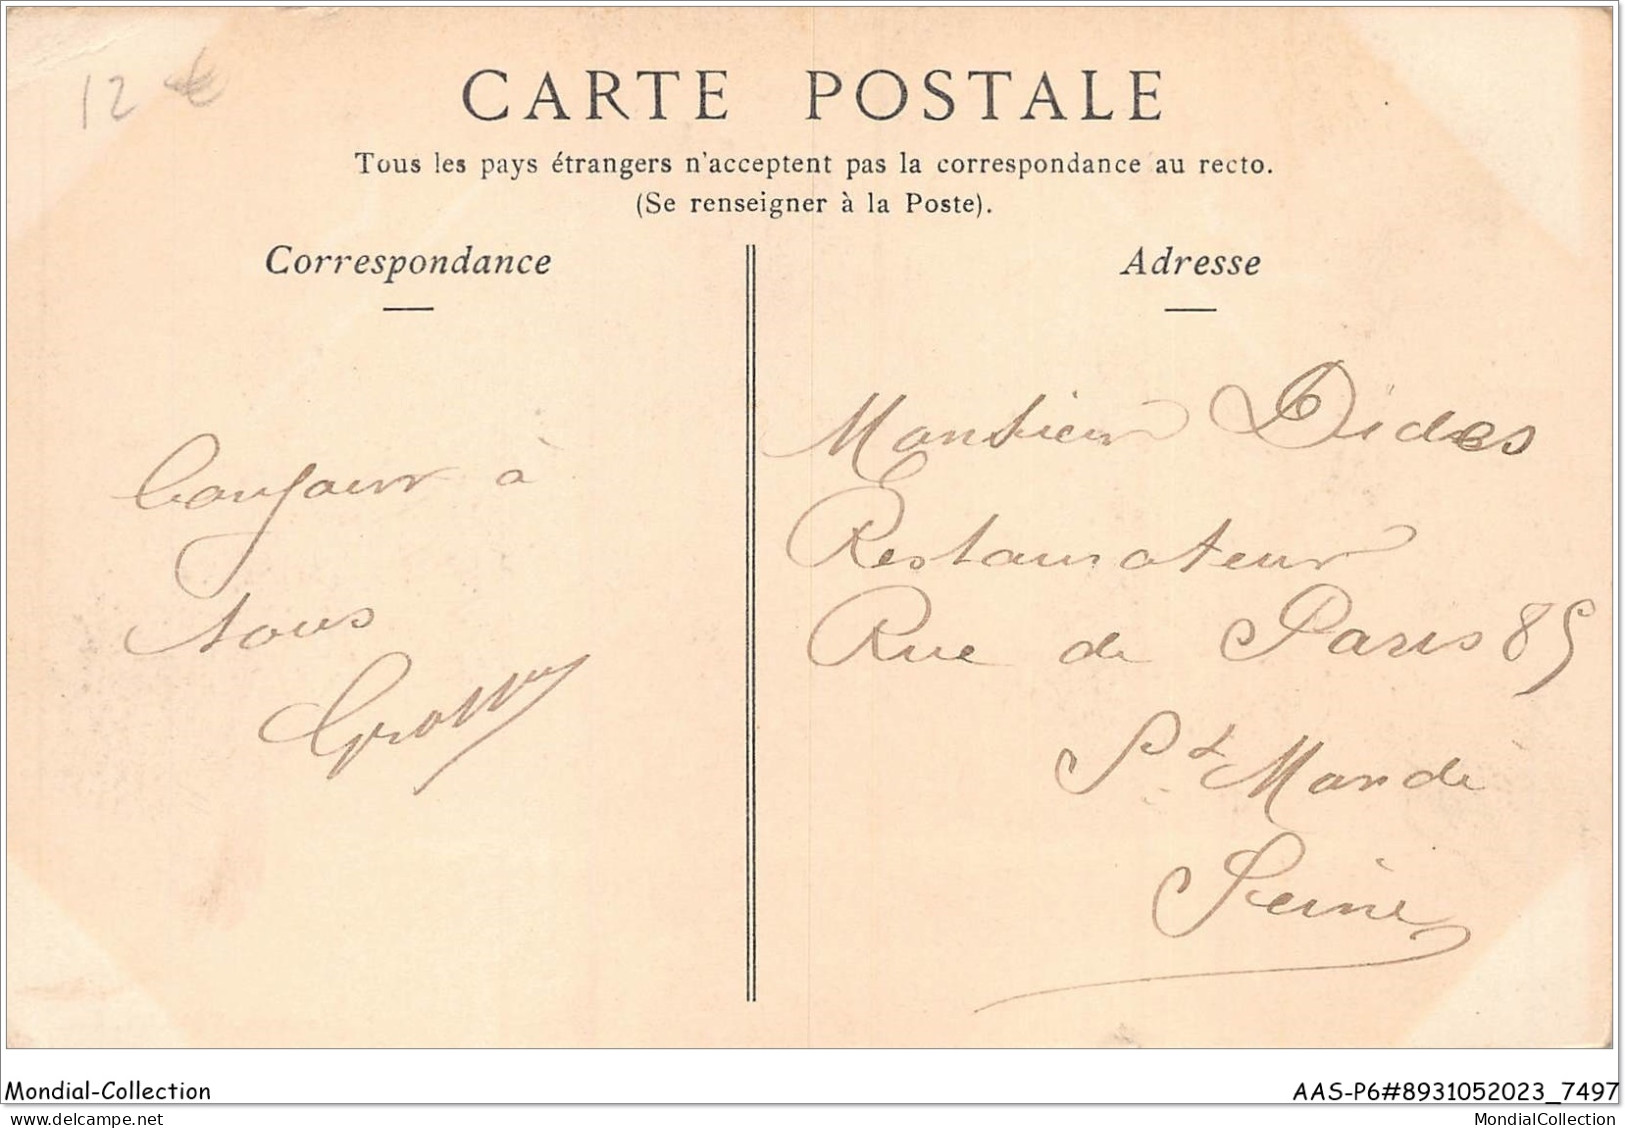 12 €
CARTE POSTALE
Tous les pays étrangers n'acceptent pas la correspondance au recto.
(Se renseigner à la Poste).
Correspondance
Bonjour à
tous
Adresse
Monsieur Dides
Restaurateur
Rue de Paris 85
St Mandé
Seine
Mondial-Collection
AAS-P6#8931052023_7497
MondialCollection